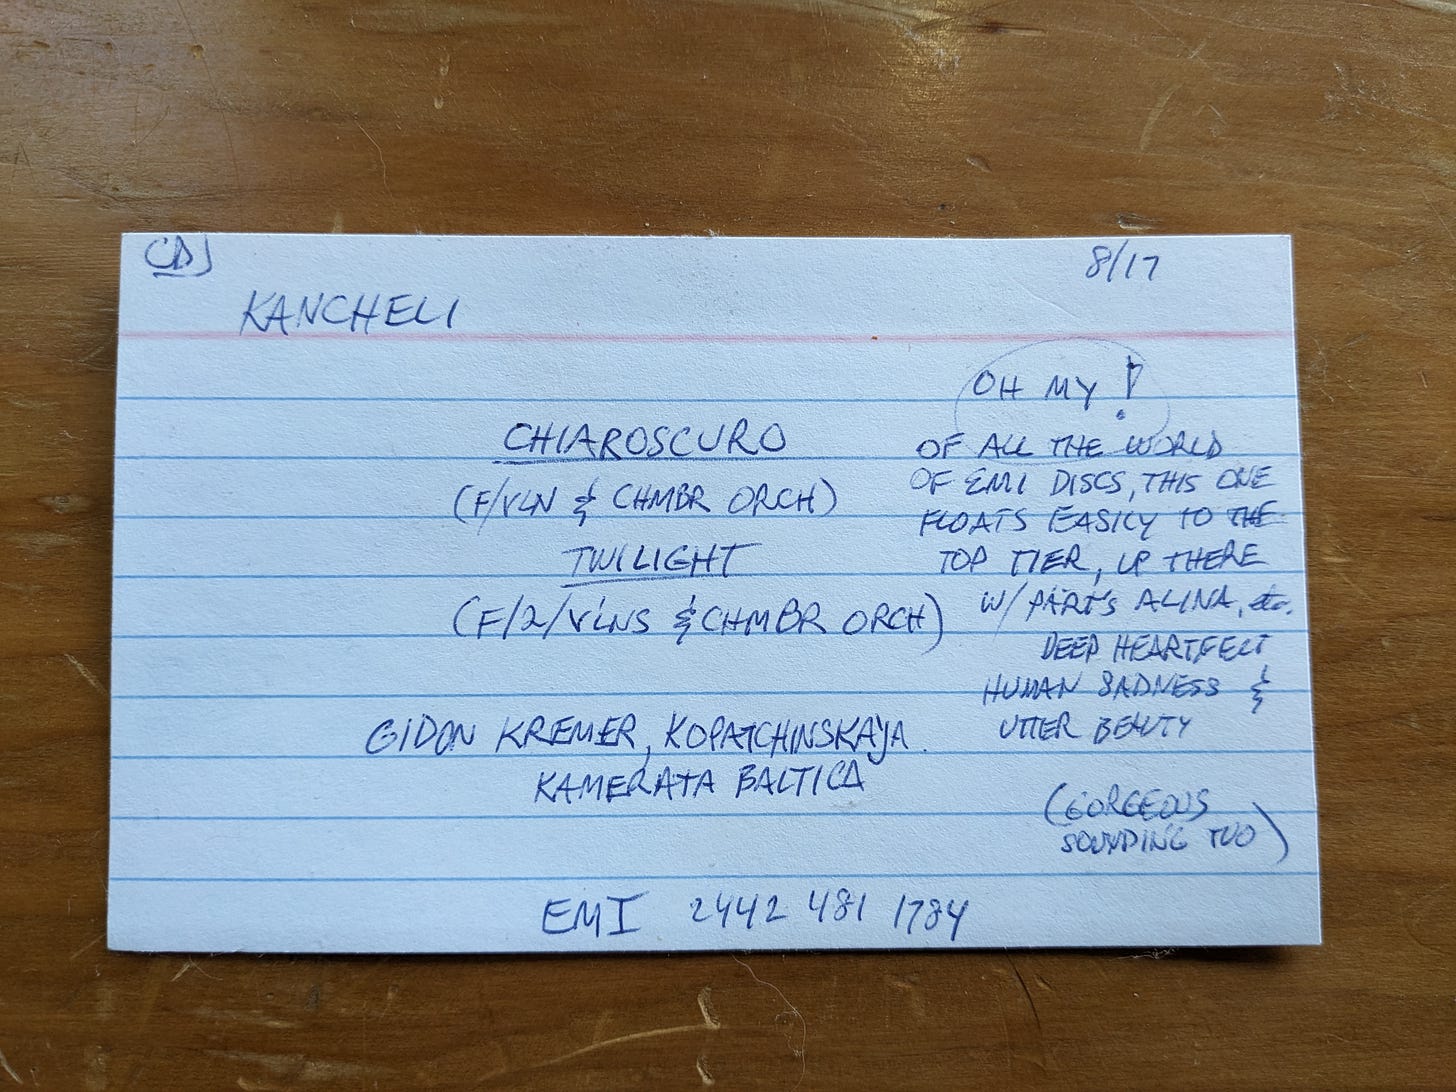 CD
8/17
KANCHELI
OH MY!
CHIAROSCURO
(F/VLN & CHMBR ORCH)
TWILIGHT
(F/2/VLNS & CHMBR ORCH)
OF ALL THE WORLD
OF EMI DISCS, THIS ONE
FLOATS EASILY TO THE
TOP TIER, UP THERE
W/ PÄRT'S ALINA, etc.
DEEP HEARTFELT
HUMAN SADNESS &
UTTER BEAUTY
(GORGEOUS
SOUNDING TOO)
GIDON KREMER, KOPATCHINSKAJA.
KAMERATA BALTICA
EMI 2442 481 1784